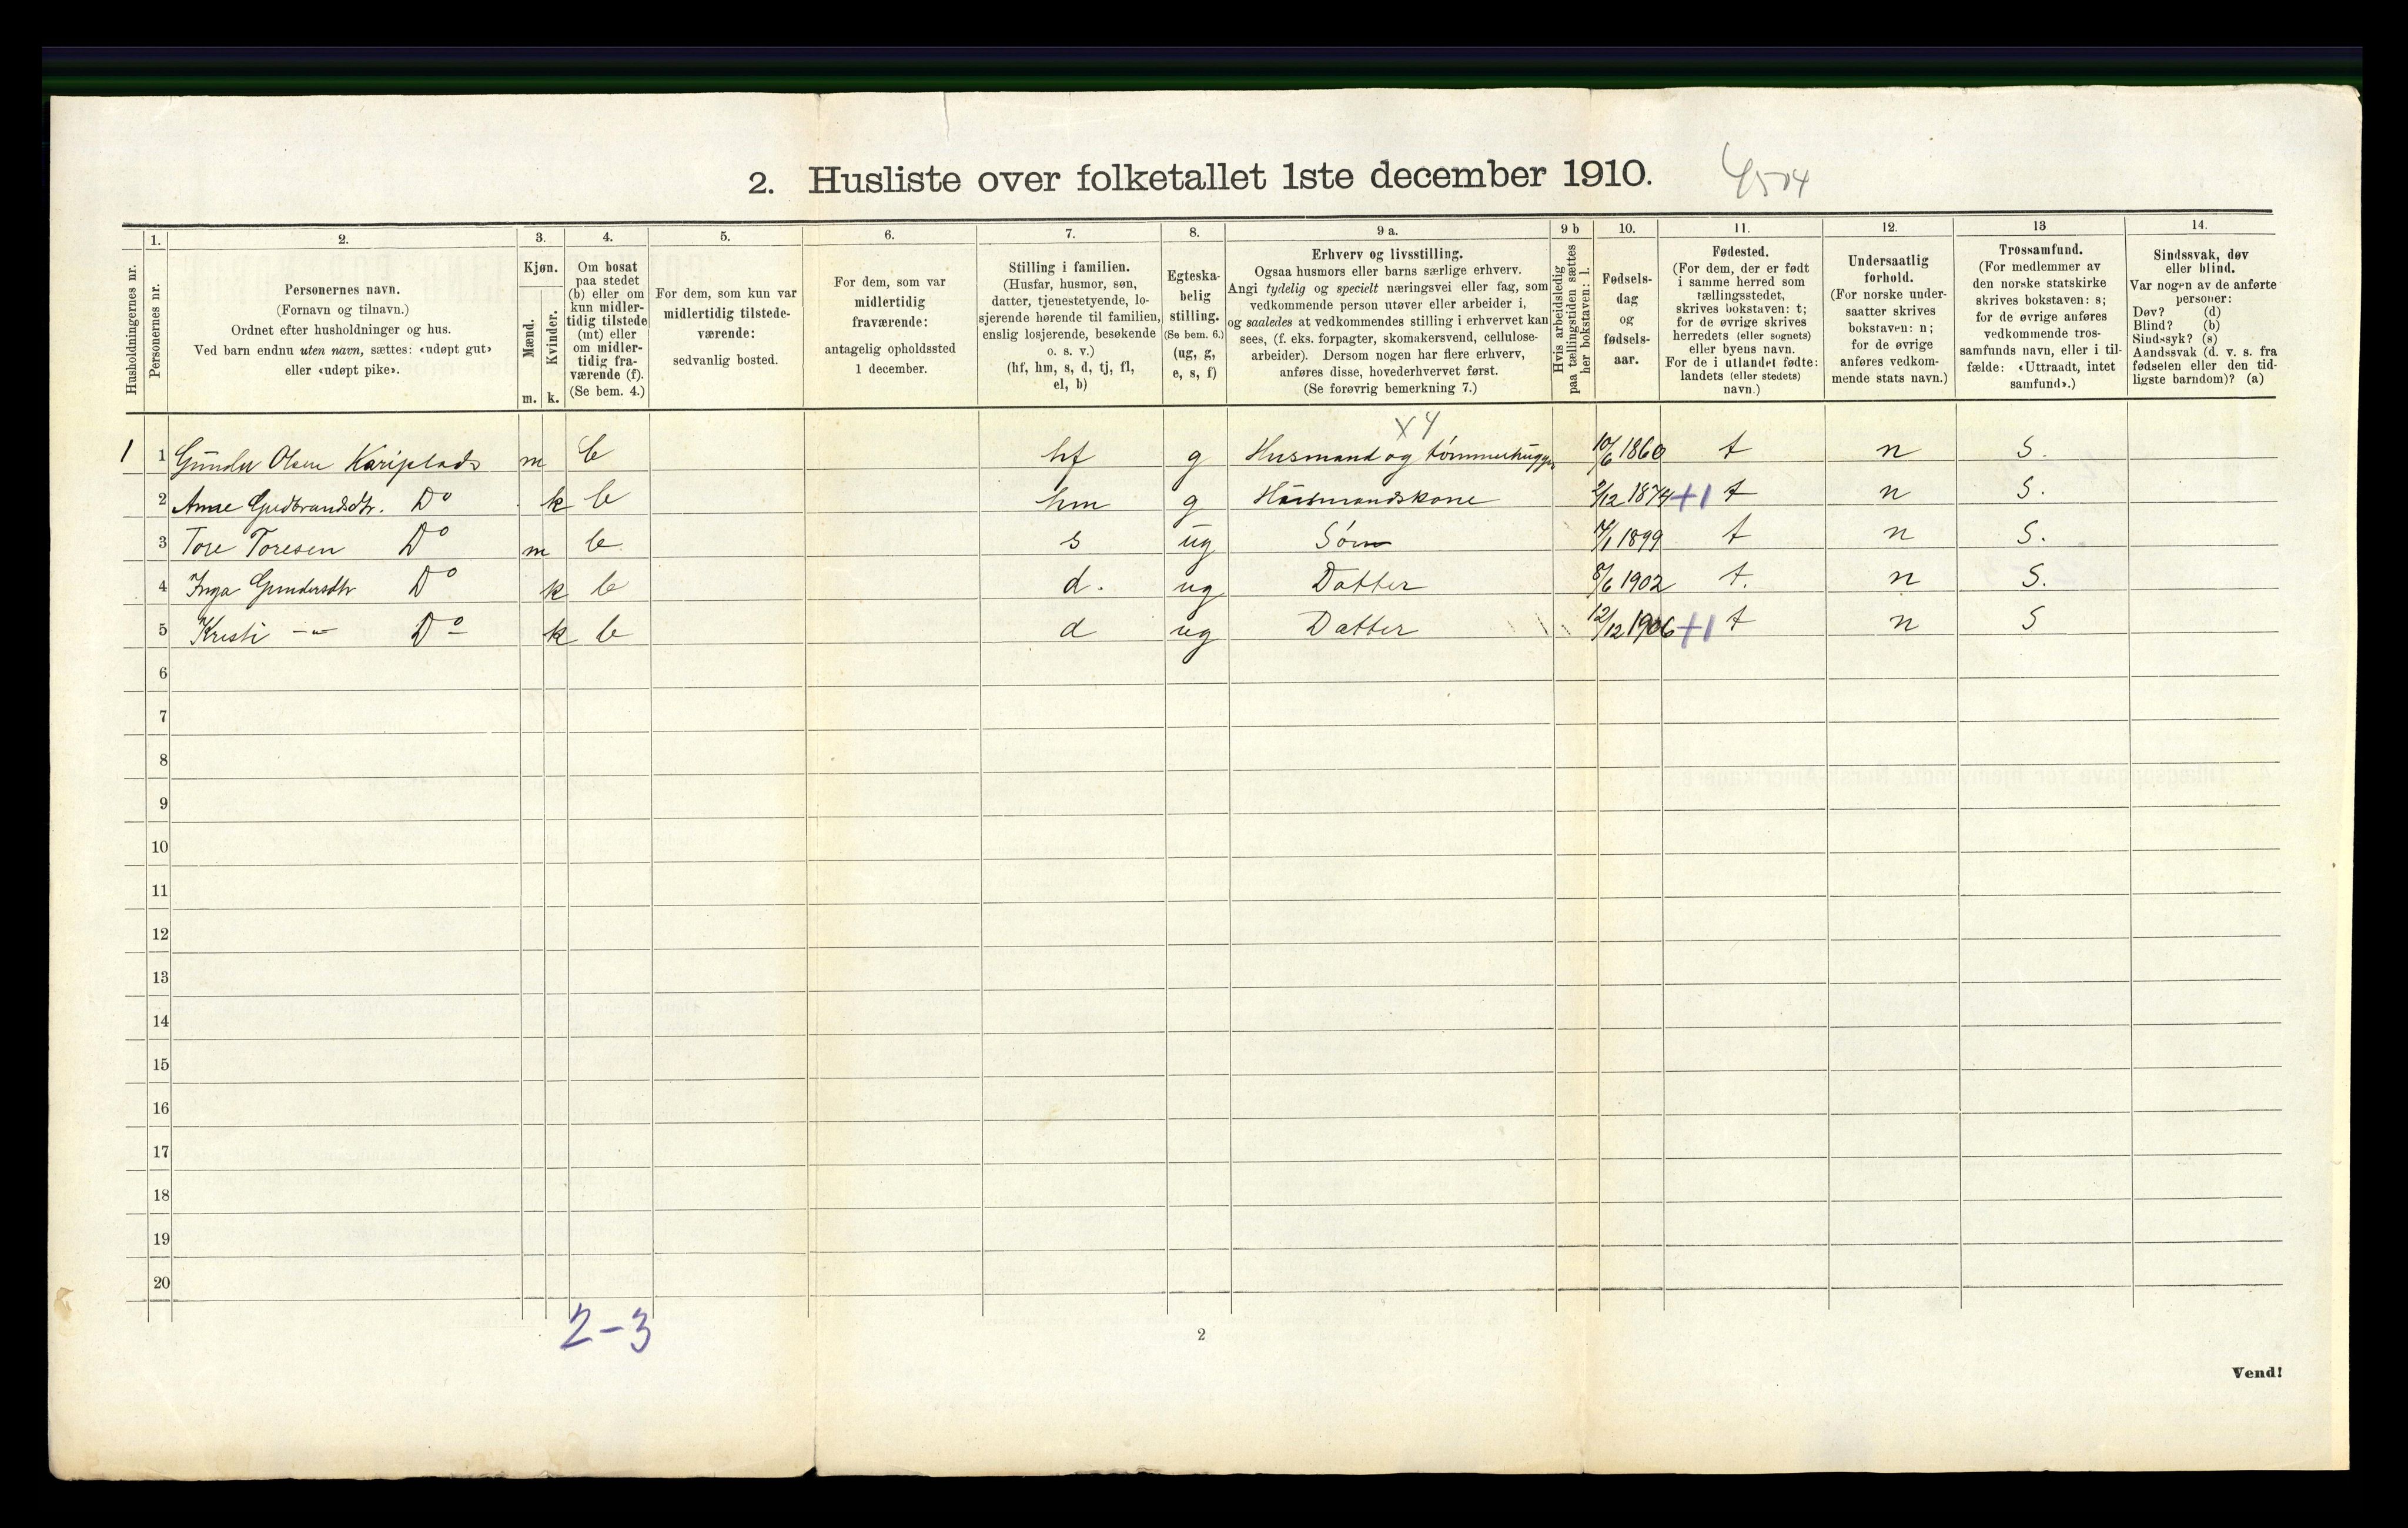 2. Husliste over folketallet 1ste december 1910.
Husholdningernes nr.
1. Personernes nr.
2. Personernes navn.
(Fornavn og tilnavn.)
Ordnet efter husholdninger og hus.
Ved barn endnu uten navn, sættes: «udøpt gut»
eller «udøpt pike».
3. Kjøn.
Mænd. Kvinder.
m. k.
4. Om bosat
paa stedet
(b) eller om
kun midler-
tidig tilstede
(mt) eller
om midler-
tidig fra-
værende (f).
(Se bem. 4.)
5. For dem, som kun var
midlertidig tilstede-
værende:
sedvanlig bosted.
6. For dem, som var
midlertidig
fraværende:
antagelig opholdssted
1 december.
7. Stilling i familien.
(Husfar, husmor, søn,
datter, tjenestetyende, lo-
sjerende hørende til familien,
enslig losjerende, besøkende
o. s. v.)
(hf, hm, s, d, tj, fl,
el, b)
8. Egteska-
belig
stilling.
(Se bem. 6.)
(ug, g,
e, s, f)
9 a. Erhverv og livsstilling.
Ogsaa husmors eller barns særlige erhverv.
Angi tydelig og specielt næringsvei eller fag, som
vedkommende person utøver eller arbeider i,
og saaledes at vedkommendes stilling i erhvervet kan
sees, (f. eks. forpagter, skomakersvend, cellulose-
arbeider). Dersom nogen har flere erhverv,
anføres disse, hovederhvervet først.
(Se forøvrig bemerkning 7.)
9 b Hvis arbeidsledig
paa tællingstiden sættes
her bokstaven: l.
10. Fødsels-
dag
og
fødsels-
aar.
11. Fødested.
(For dem, der er født
i samme herred som
tællingsstedet,
skrives bokstaven: t;
for de øvrige skrives
herredets (eller sognets)
eller byens navn.
For de i utlandet fødte:
landets (eller stedets)
navn.)
12. Undersaatlig
forhold.
(For norske under-
saatter skrives
bokstaven: n;
for de øvrige
anføres vedkom-
mende stats navn.)
13 Trossamfund.
(For medlemmer av
den norske statskirke
skrives bokstaven: s;
for de øvrige anføres
vedkommende tros-
samfunds navn, eller i til-
fælde: «Uttraadt, intet
samfund».)
14. Sindssvak, døv
eller blind.
Var nogen av de anførte
personer:
Døv? (d)
Blind? (b)
Sindssyk? (s)
Aandssvak (d. v. s. fra
fødselen eller den tid-
ligste barndom)? (a)
x 4
1 1 Gunder Olsen Kariplads m b hf g Husmand og tømmerhugger 10/6 1860 t n S.
2 Anne Gudbrandsdtr. Do k b hm g Husmandskone 2/12 1874 +1 t n S.
3 Tore Toresen Do m b s ug Søn 1899 t n S.
4 Inga Gundersdtr Do k b d. ug Datter 8/6 1902 t. n S.
5 Kristi -"- Do k b d ug Datter 12/12 1906 +1 t n S
6
7
8
9
10
11
12
13
14
15
16
17
18
19
20
2-3
2
Vend!